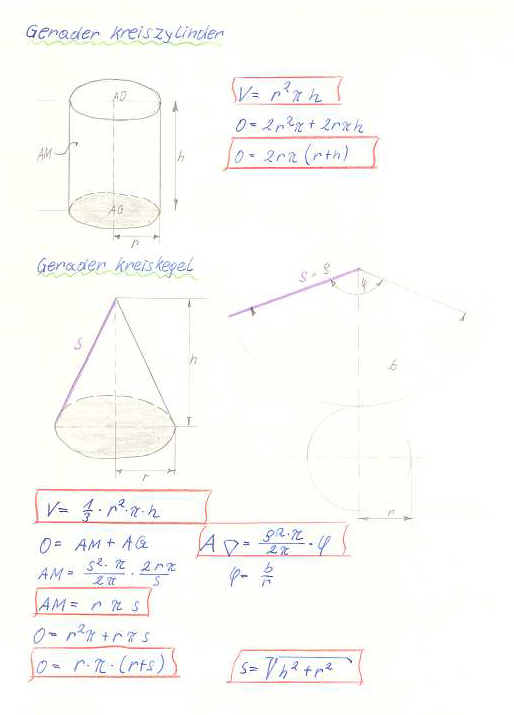 Gerader Kreiszylinder
AD
AM
h
AG
r
V = r²πh
O = 2r²π + 2rπh
O = 2rπ (r+h)
Gerader Kreiskegel
s
h
r
s = s
φ
b
r
V = 1/3 · r² · π · h
O = AM + AG
AM = s²·π/2π · 2rπ/s
AM = r π s
O = r²π + r π s
O = r·π·(r+s)
A = s²·π/2π · φ
φ = b/r
s = √h² + r²